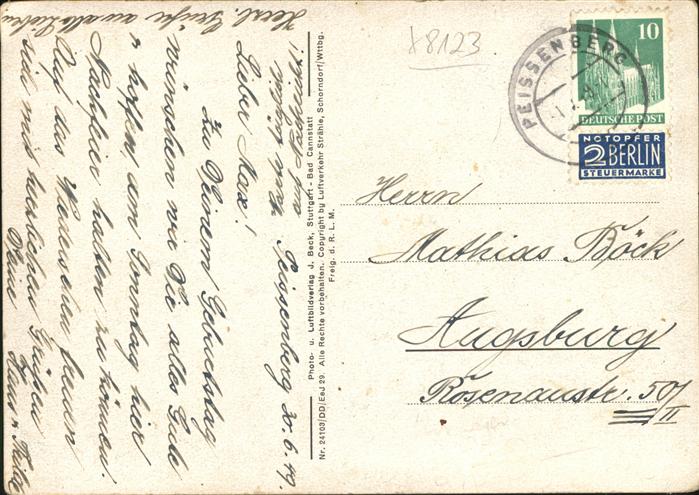 Peissenberg 20.6.49.
Lieber Max!
Zu Deinem Geburtstag
wünschen wir Dir alles Gute
u. hoffen, am Sonntag hier
Nachfeier halten zu können.
Auf das Wiedersehen freuen
sich mit herzlichen Grüßen
Deine
Herzl. Grüße an alle Lieben
Photo- u. Luftbildverlag J. Beck, Stuttgart - Bad Cannstatt
Nr. 24103/DD/EeJ 29. Alle Rechte vorbehalten. Copyright by Luftverkehr Strähle, Schorndorf/Wttbg.
Freig. d. R. L. M.
18123
PEISSENBERG
10
DEUTSCHE POST
NOTOPFER
2 BERLIN
STEUERMARKE
Herrn
Mathias Böck
Augsburg
Rosenaustr. 50/II